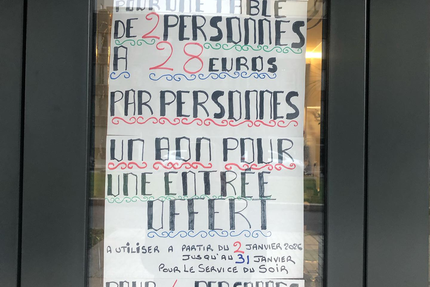 POUR UNE TABLE
DE 2 PERSONNES
A 28 EUROS
PAR PERSONNES
UN BON POUR
UNE ENTRÉE
OFFERT
A UTILISER A PARTIR DU 2 JANVIER 2026
JUSQU'AU 31 JANVIER
POUR LE SERVICE DU SOIR
POUR 4 PERSONNES